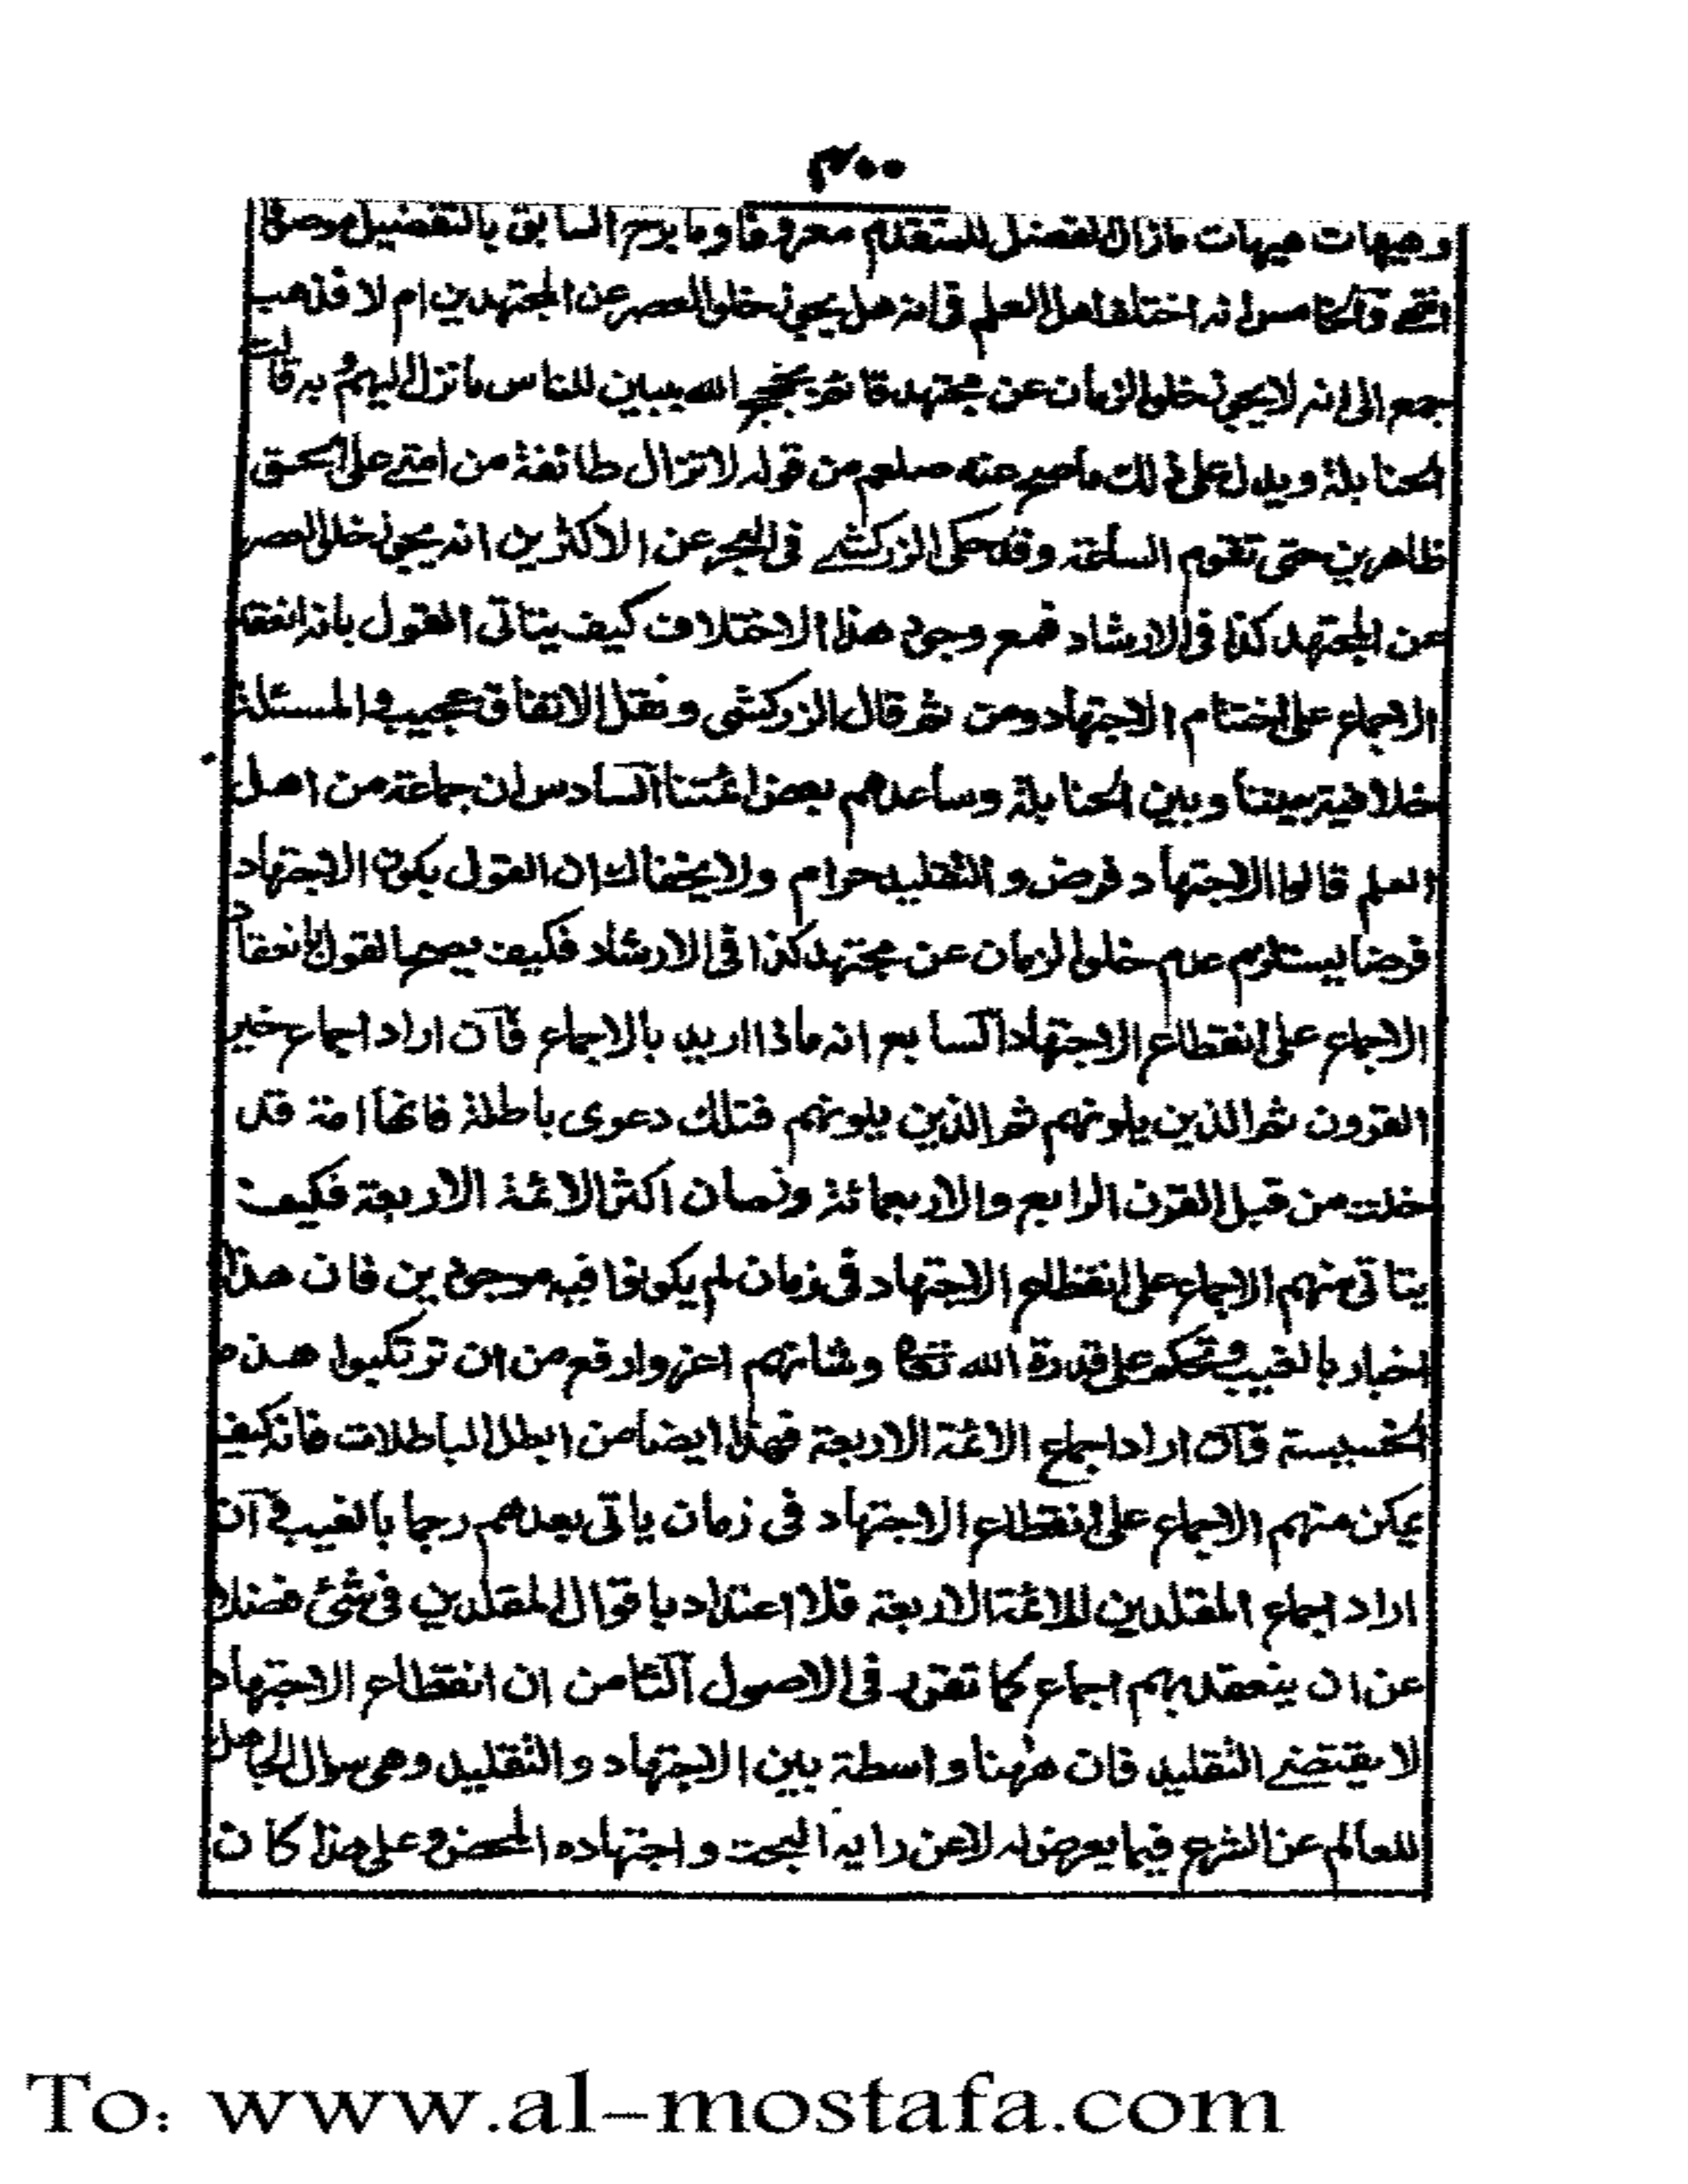 ٣٠٠
وهيهات هيهات مازال الفضل للمتقدم معروفا وما برح السابق بالتفضيل موصوفا
انتهى والخامس انه اختلف اهل العلم فى انه هل يجوز خلو العصر عن المجتهدين ام لا فذهب
جمع الى انه لا يجوز خلو الزمان عن مجتهد قائم بحجج الله يبين للناس ما نزل اليهم وبه قالت
الحنابلة ويدل على ذلك ما صح عنه صلعم من قوله لا تزال طائفة من امتى على الحق
ظاهرين حتى تقوم الساعة وقد حكى الزركشى فى البحر عن الاكثرين انه يجوز خلو العصر
عن المجتهد كذا فى الارشاد فمع وجود هذا الاختلاف كيف يتاتى القول بانه انعقد
الاجماع على اختتام الاجتهاد ومن ثم قال الزركشى ونقل الاتفاق عجيب والمسئلة
خلافية بيننا وبين الحنابلة وساعدهم بعض ائمتنا السادس ان جماعة من اهل
العلم قالوا الاجتهاد فرض والتقليد حرام ولا يخفاك ان القول بكون الاجتهاد
فرضا يستلزم عدم خلو الزمان عن مجتهد كذا فى الارشاد فكيف يصح القول بانعقاد
الاجماع على انقطاع الاجتهاد السابع انه ماذا اريد بالاجماع فان اراد اجماع خير
القرون ثم الذين يلونهم ثم الذين يلونهم فتلك دعوى باطلة فانها امة قد
خلت من قبل القرن الرابع والاربعمائة وزمان اكثر الائمة الاربعة فكيف
يتاتى منهم الاجماع على انقطاع الاجتهاد فى زمان لم يكونوا فيه موجودين فان هذا
اخبار بالغيب وتحكم على قدرة الله تعالى وشانهم اعز وارفع من ان ترتكبوا هذه
الخسيسة وان اراد اجماع الائمة الاربعة فهذا ايضا من ابطل الباطلات فانه كيف
يمكن منهم الاجماع على انقطاع الاجتهاد فى زمان ياتى بعدهم رجما بالغيب وان
اراد اجماع المقلدين للائمة الاربعة فلا اعتداد باقوال المقلدين فى شئ فضلا
عن ان ينعقد بهم اجماع كما تقرر فى الاصول الثامن ان انقطاع الاجتهاد
لا يقتضى التقليد فان ههنا واسطة بين الاجتهاد والتقليد وهى سوال الجاهل
للعالم عن الشرع فيما يعرض له لا عن رايه البحت واجتهاده المحض وعلى هذا كان
To: www.al-mostafa.com